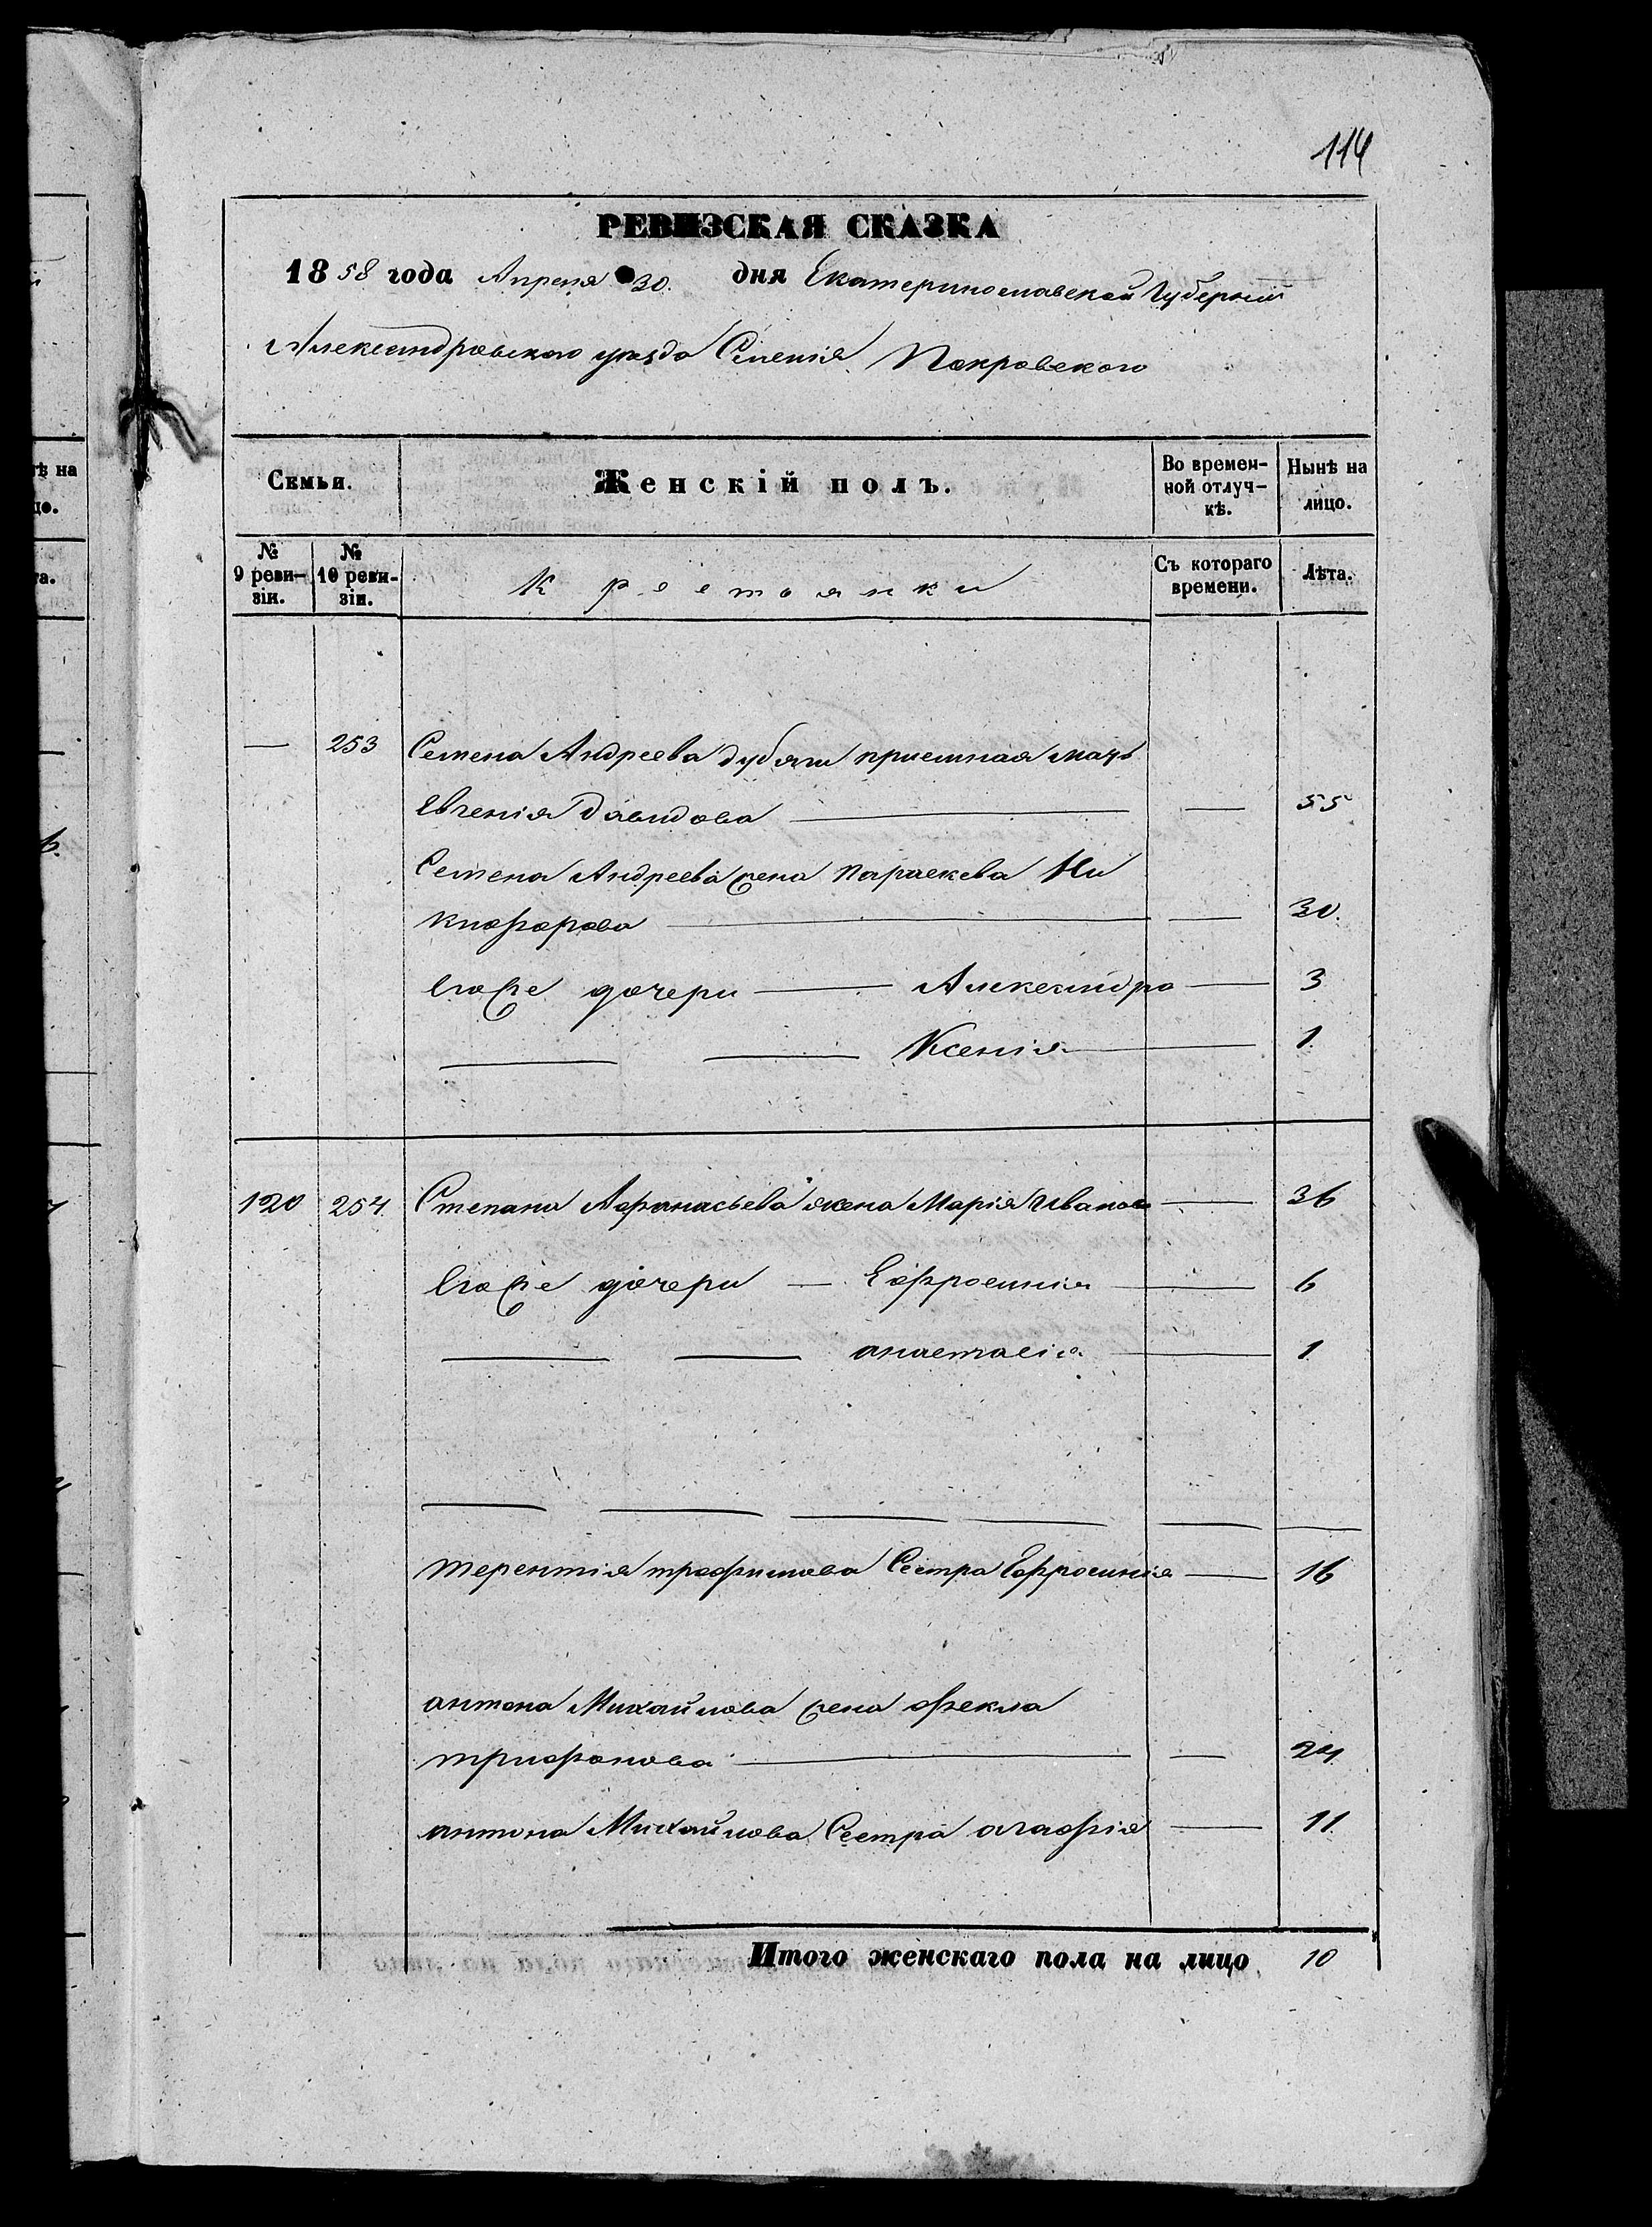 114
РЕВИЗСКАЯ СКАЗКА
1858 года Апреля 30. дня Екатеринославской Губерніи
Александровского уезда Селенія Покровского
Семьи.
Женскій полъ.
Во времен-
ной отлуч-
кѣ.
Нынѣ на
лицо.
№
9 реви-
зіи.
№
10 реви-
зіи.
Крестьянки
Съ котораго
времени.
Лѣта.
— 253 Семена Андреева дубяги приемная мать
Евгенія Давидова — — 55
Семена Андреева жена Параскева Ни
кифорова — — 30.
Егоже дочери — Александра — 3
— — Ксенія — 1
120 254. Степана Афанасьева жена Марія Иванова — 36
Егоже дочери — Ефросинія — 6
— — анастасія — 1
— — — — — —
терентія трофимова Сестра Ефросинія — 16
антона Михайлова жена фекла
трифонова — — 24
антона Михайлова Сестра агафія — 11
Итого женскаго пола на лицо 10
ѣ на
цо.
та.